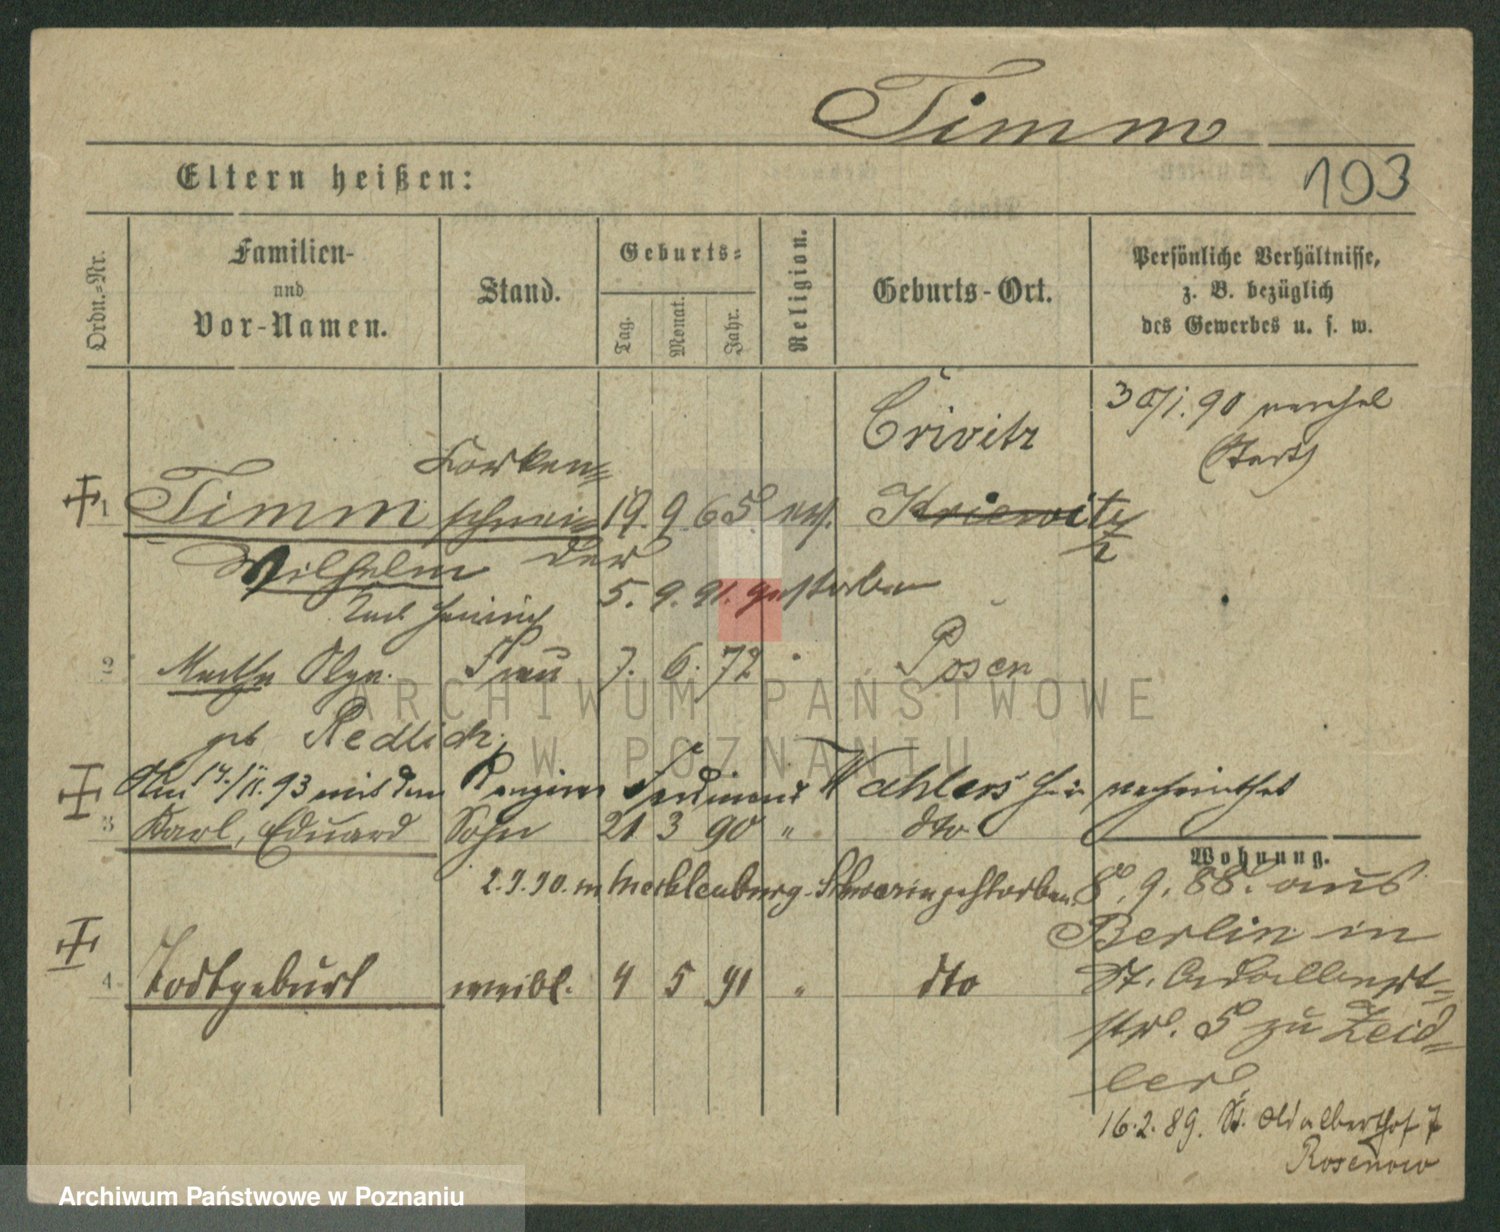 Timm
193
Eltern heißen:
Ordn.-Nr.
Familien-
und
Vor-Namen.
Stand.
Geburts-
Tag.
Monat.
Jahr.
Religion.
Geburts-Ort.
Persönliche Verhältnisse,
z. B. bezüglich
des Gewerbes u. s. w.
1
Timm
Wilhelm
Karl Heinrich
Korken-
schnei-
der
19. 9. 65. ev.
Crivitz
Kriewitz
tz
30/1. 90
5. 9. 91. gestorben
2
Martha Olga.
geb Redlich,
Frau 7. 6. 72 "
Posen
Am 14./II. 93 mit dem Ferdinand Wahlers hier verheirathet
3
Karl, Eduard Sohn 21 3 90 " dto
2.9.90. in Mecklenburg-Schwerin gestorben.
4
Todtgeburt weibl. 4 5 91 " dto
Wohnung.
8. 9. 88. aus
Berlin in
St. Adalbert-
str. 5 zu Zeid-
ler
16.2.89. St. Adalberthof 7
Rosenow
ARCHIWUM PAŃSTWOWE
W POZNANIU
Archiwum Państwowe w Poznaniu